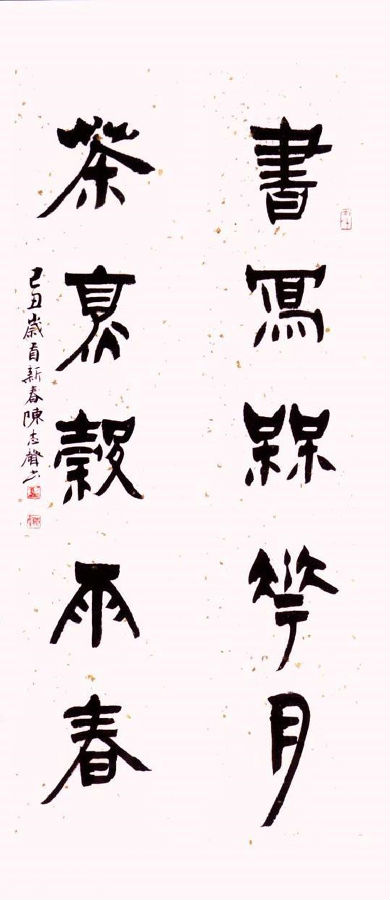 書寫槑華月
茶烹穀雨春
己丑歲首新春陳志聲